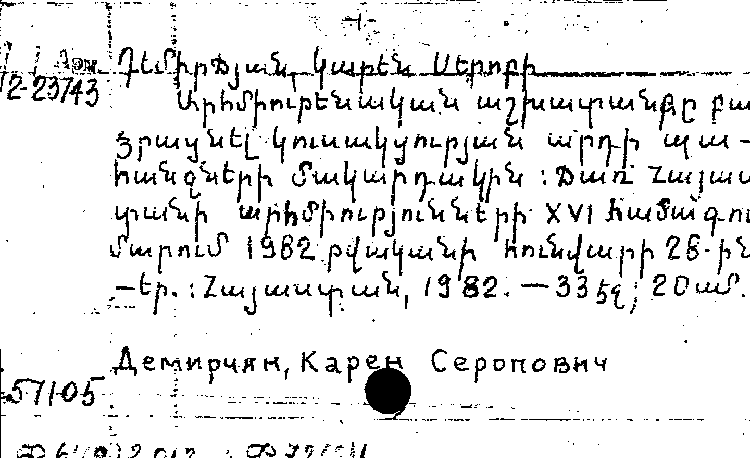 Арм
2-23743
Դեմիրճյան, Կարեն Սերոբի
Արհմիութենական աշխատանքը բա
ձրացնել կուսակցության արդի պա-
հանջների մակարդակին : Ճառ Հայաս
տանի արհմիությունների XVI համագու
մարում 1982 թվականի հունվարի 26-ին
-Եր. : Հայաստան, 1982. — 33 էջ ; 20 սմ.
Демирчян, Карен Серопович
57105